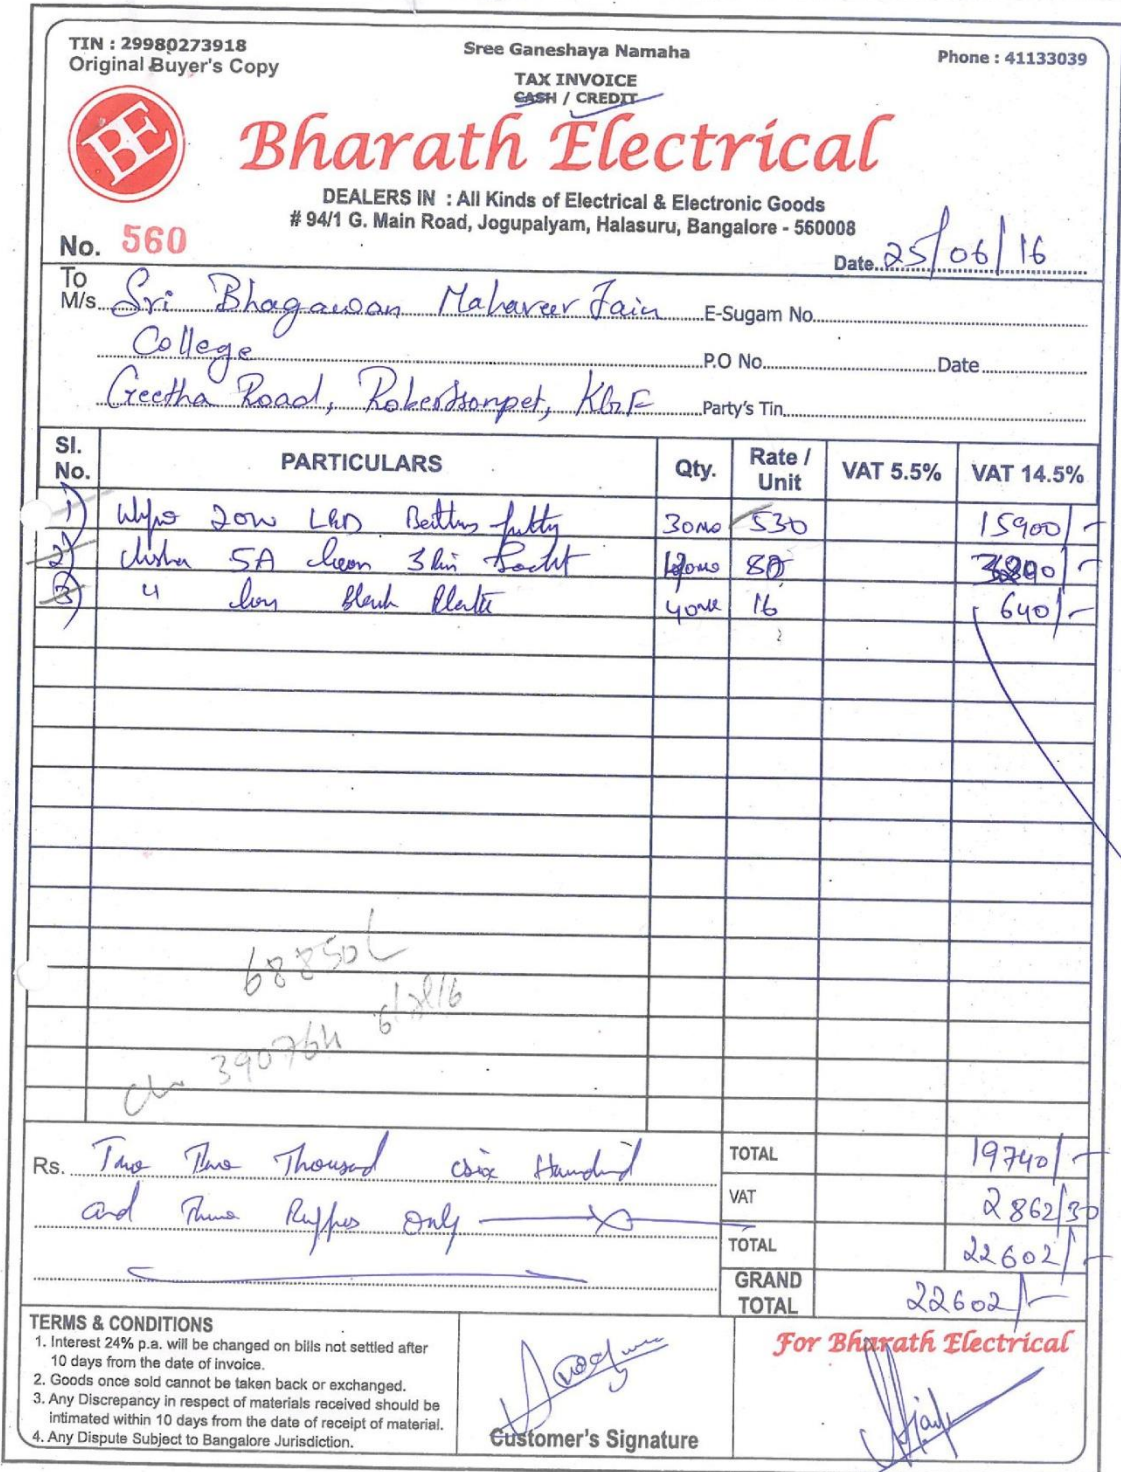 TIN : 29980273918
Original Buyer's Copy
Sree Ganeshaya Namaha
Phone : 41133039
TAX INVOICE
CASH / CREDIT
BE
Bharath Electrical
DEALERS IN : All Kinds of Electrical & Electronic Goods
# 94/1 G. Main Road, Jogupalyam, Halasuru, Bangalore - 560008
No. 560
Date 25/06/16
To
M/s. Sri Bhagawan Mahaveer Jain E-Sugam No.
College P.O No. Date
Geetha Road, Robertsonpet, KGF Party's Tin
Sl. No. PARTICULARS Qty. Rate / Unit VAT 5.5% VAT 14.5%
1) 20W LED fitting 30no 530 15900/-
2) 5A 3 Pin 80
3) " Blank Plate 40no 16 640/-
68850
390764
TOTAL 19740/-
Rs. Thousand Six Hundred
VAT 2862/30
and Rupees Only
TOTAL 22602/-
GRAND TOTAL 22602/-
TERMS & CONDITIONS
1. Interest 24% p.a. will be changed on bills not settled after
10 days from the date of invoice.
2. Goods once sold cannot be taken back or exchanged.
3. Any Discrepancy in respect of materials received should be
intimated within 10 days from the date of receipt of material.
4. Any Dispute Subject to Bangalore Jurisdiction.
Customer's Signature
For Bharath Electrical